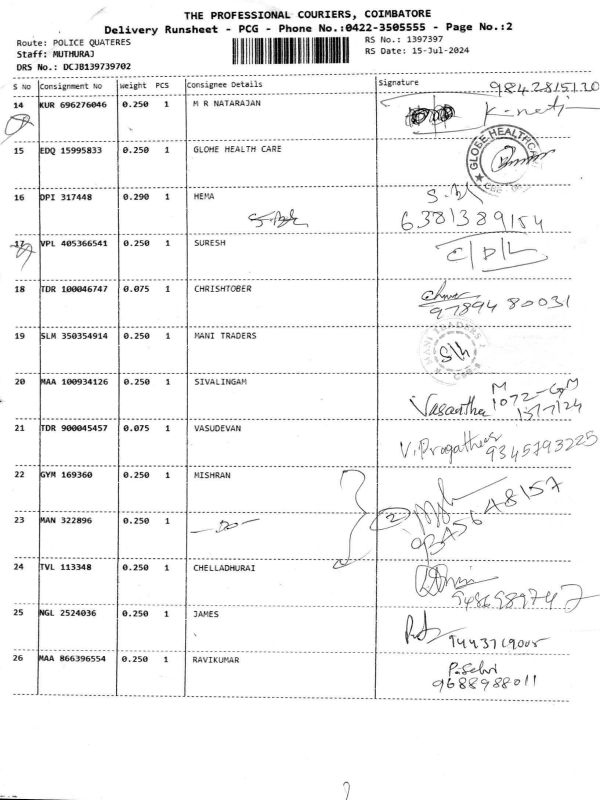 THE PROFESSIONAL COURIERS, COIMBATORE
Delivery Runsheet - PCG - Phone No.:0422-3505555 - Page No.:2
Route: POLICE QUATERES
RS No.: 1397397
Staff: MUTHURAJ
RS Date: 15-Jul-2024
DRS No.: DCJB139739702
S No Consignment No Weight PCS Consignee Details Signature
9842815130
14 KUR 696276046 0.250 1 M R NATARAJAN
15 EDQ 15995833 0.250 1 GLOHE HEALTH CARE
GLOBE HEALTHCARE
16 DPI 317448 0.290 1 HEMA
6381389154
17 VPL 405366541 0.250 1 SURESH
C/D/L
18 TDR 100046747 0.075 1 CHRISHTOBER
97894 80031
19 SLM 350354914 0.250 1 MANI TRADERS
MANI TRADERS
20 MAA 100934126 0.250 1 SIVALINGAM
Vasantha M 1072-GM
15/7/24
21 TDR 900045457 0.075 1 VASUDEVAN
9345793225
22 GYM 169360 0.250 1 MISHRAN
2
23 MAN 322896 0.250 1 —Do—
9345648157
24 TVL 113348 0.250 1 CHELLADHURAI
25 NGL 2524036 0.250 1 JAMES
26 MAA 866396554 0.250 1 RAVIKUMAR
P.Selvi
9688988011